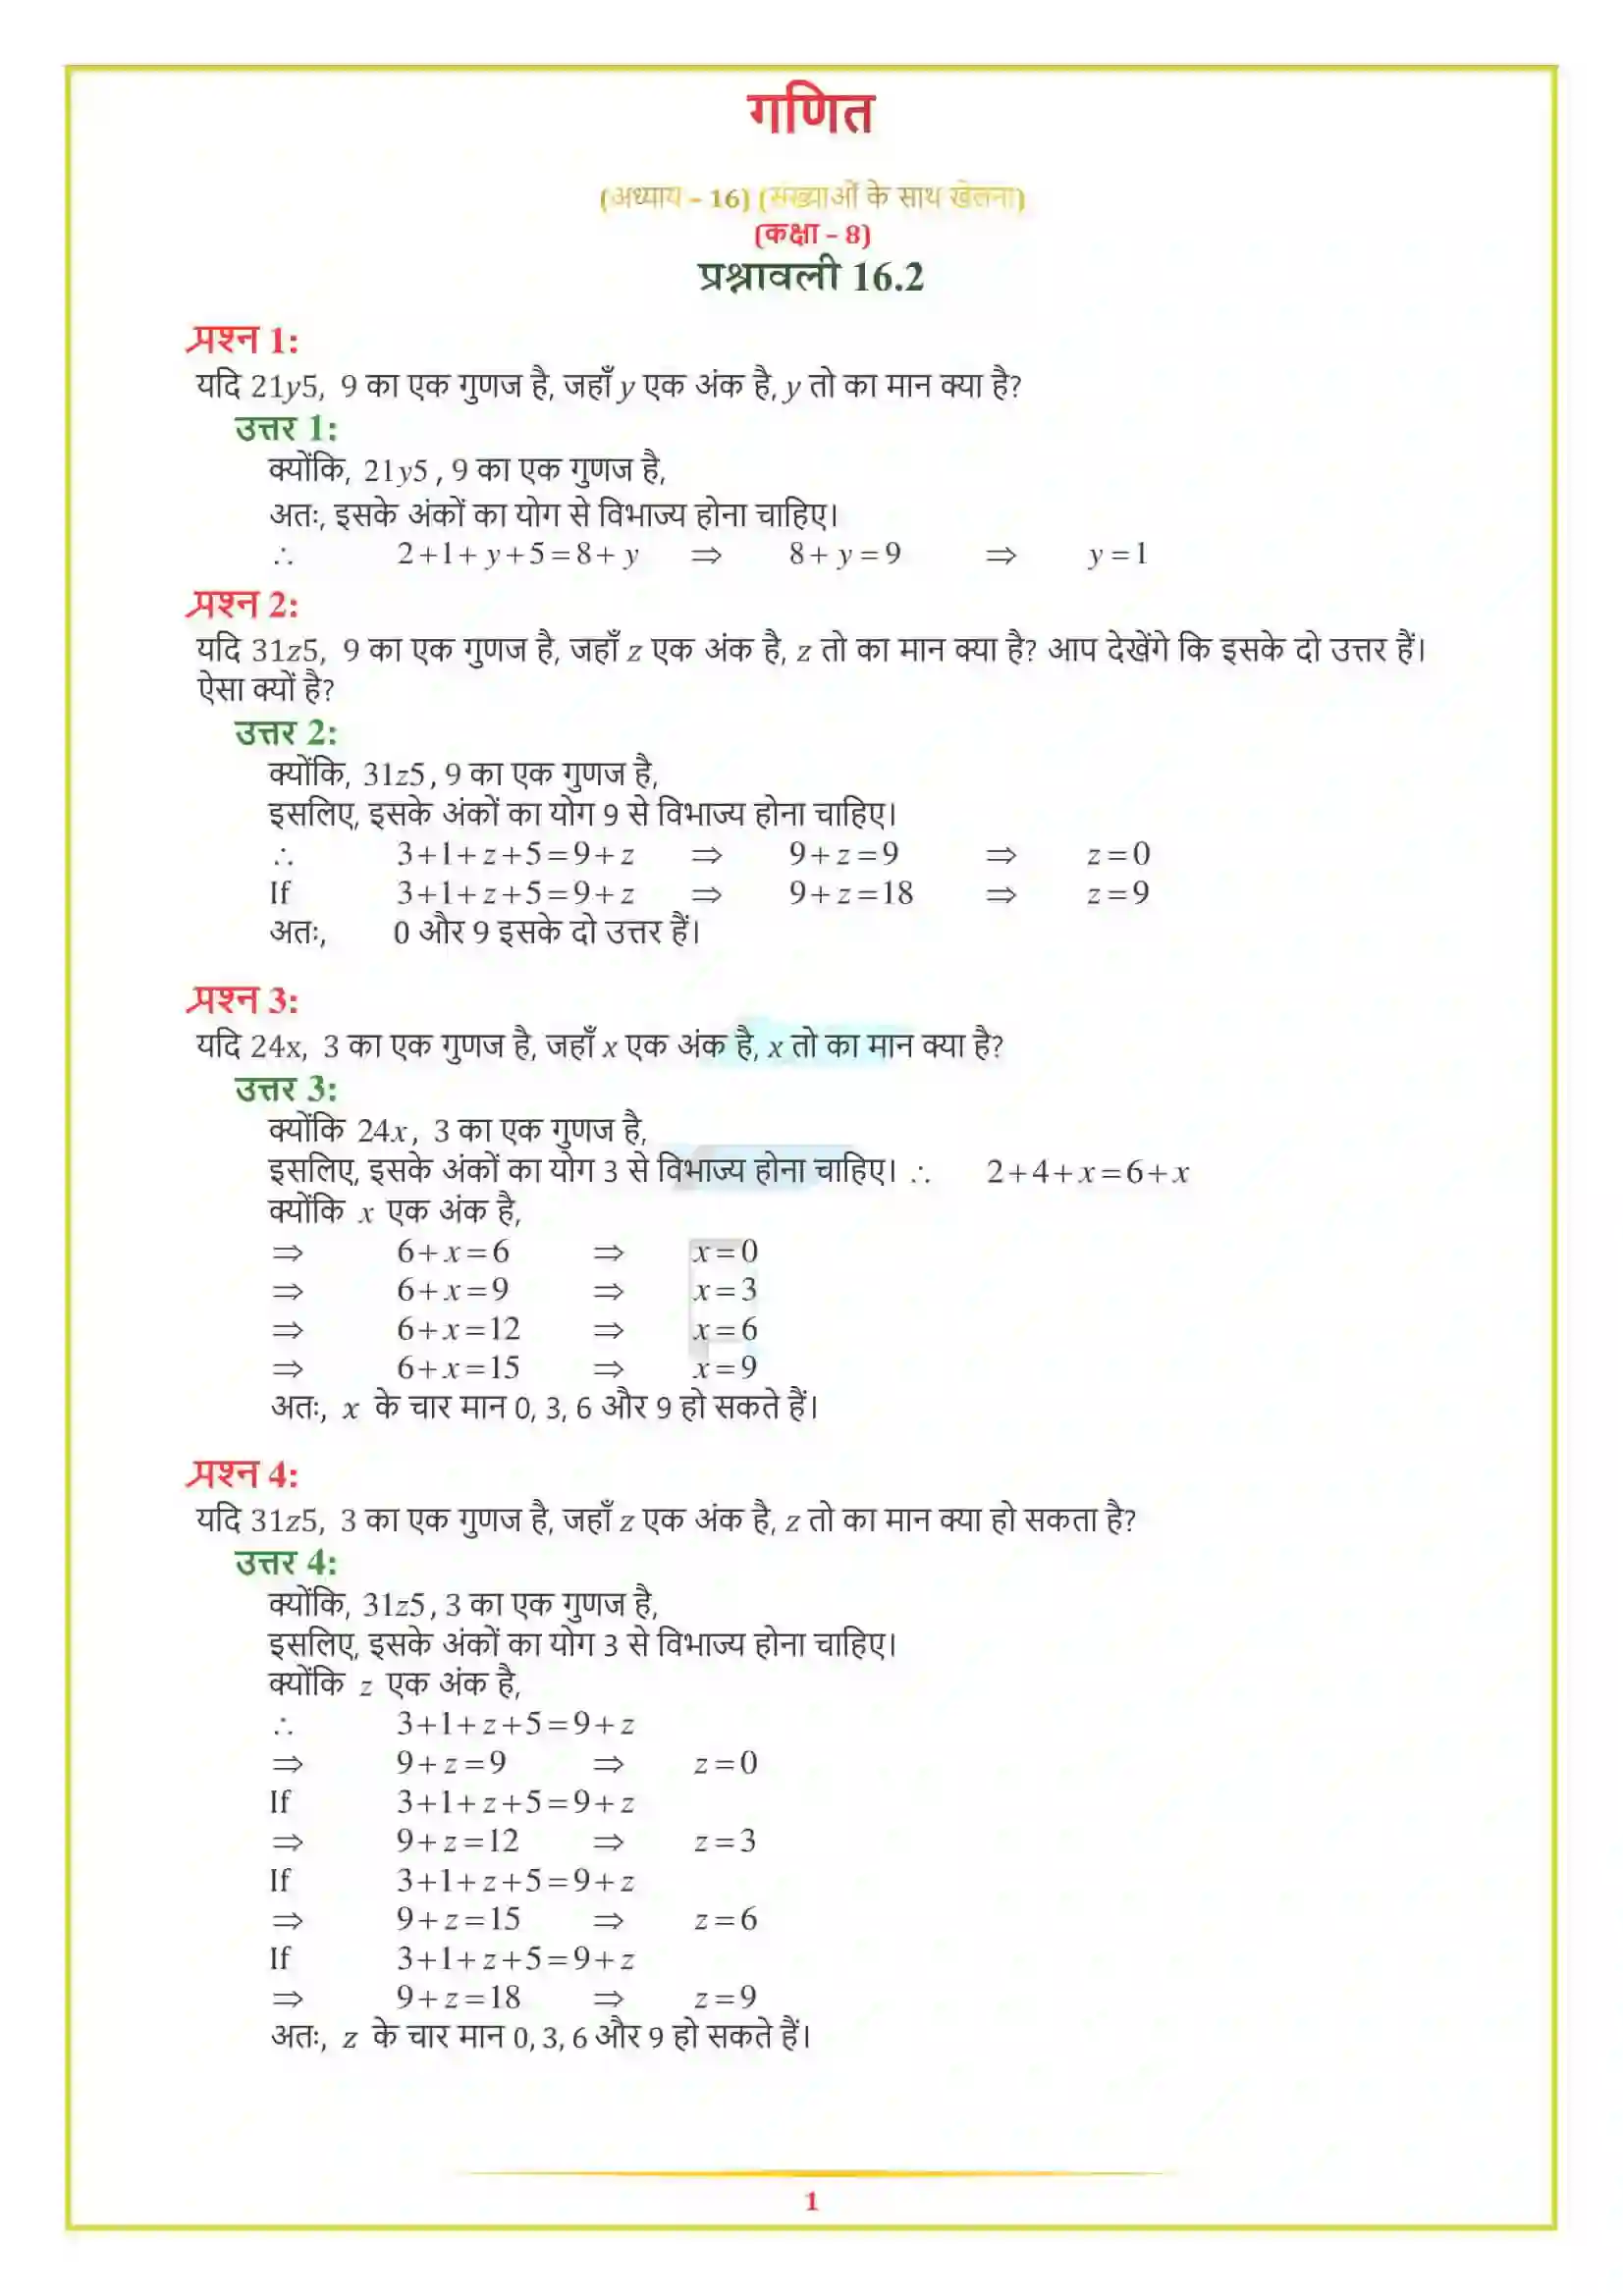 गणित
(अध्याय – 16) (संख्याओं के साथ खेलना)
(कक्षा – 8)
प्रश्नावली 16.2
प्रश्न 1:
यदि 21y5, 9 का एक गुणज है, जहाँ y एक अंक है, y तो का मान क्या है?
उत्तर 1:
क्योंकि, 21y5 , 9 का एक गुणज है,
अतः, इसके अंकों का योग से विभाज्य होना चाहिए।
∴ 2+1+y+5=8+y ⇒ 8+y=9 ⇒ y=1
प्रश्न 2:
यदि 31z5, 9 का एक गुणज है, जहाँ z एक अंक है, z तो का मान क्या है? आप देखेंगे कि इसके दो उत्तर हैं।
ऐसा क्यों है?
उत्तर 2:
क्योंकि, 31z5 , 9 का एक गुणज है,
इसलिए, इसके अंकों का योग 9 से विभाज्य होना चाहिए।
∴ 3+1+z+5=9+z ⇒ 9+z=9 ⇒ z=0
If 3+1+z+5=9+z ⇒ 9+z=18 ⇒ z=9
अतः, 0 और 9 इसके दो उत्तर हैं।
प्रश्न 3:
यदि 24x, 3 का एक गुणज है, जहाँ x एक अंक है, x तो का मान क्या है?
उत्तर 3:
क्योंकि 24x, 3 का एक गुणज है,
इसलिए, इसके अंकों का योग 3 से विभाज्य होना चाहिए। ∴ 2+4+x=6+x
क्योंकि x एक अंक है,
⇒ 6+x=6 ⇒ x=0
⇒ 6+x=9 ⇒ x=3
⇒ 6+x=12 ⇒ x=6
⇒ 6+x=15 ⇒ x=9
अतः, x के चार मान 0, 3, 6 और 9 हो सकते हैं।
प्रश्न 4:
यदि 31z5, 3 का एक गुणज है, जहाँ z एक अंक है, z तो का मान क्या हो सकता है?
उत्तर 4:
क्योंकि, 31z5 , 3 का एक गुणज है,
इसलिए, इसके अंकों का योग 3 से विभाज्य होना चाहिए।
क्योंकि z एक अंक है,
∴ 3+1+z+5=9+z
⇒ 9+z=9 ⇒ z=0
If 3+1+z+5=9+z
⇒ 9+z=12 ⇒ z=3
If 3+1+z+5=9+z
⇒ 9+z=15 ⇒ z=6
If 3+1+z+5=9+z
⇒ 9+z=18 ⇒ z=9
अतः, z के चार मान 0, 3, 6 और 9 हो सकते हैं।
1